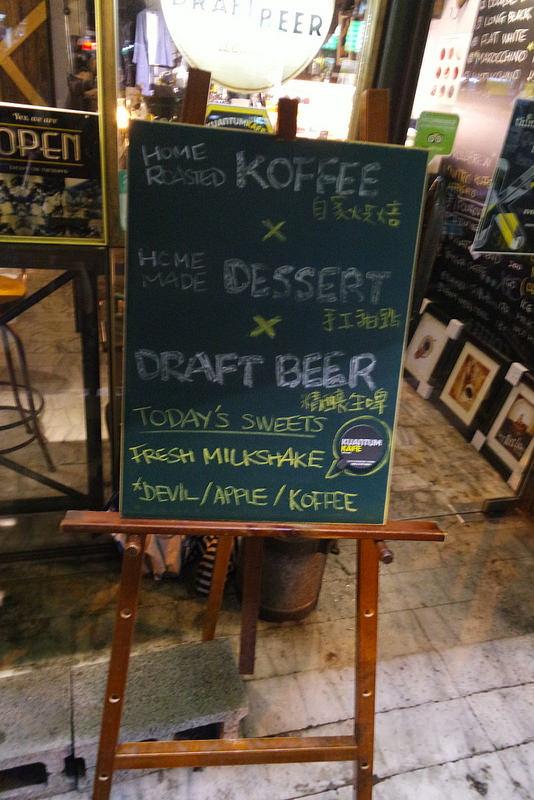 DRAFT BEER
Yes, we are
OPEN
KUANTUM KAFE
LONG BLACK
FLAT WHITE
*MAROCCHINO
HOME
ROASTED KOFFEE
自家烘焙
×
HOME
MADE DESSERT
手工甜點
×
DRAFT BEER
精釀生啤
TODAY'S SWEETS
FRESH MILKSHAKE
*DEVIL/APPLE/KOFFEE
KUANTUM
KAFE